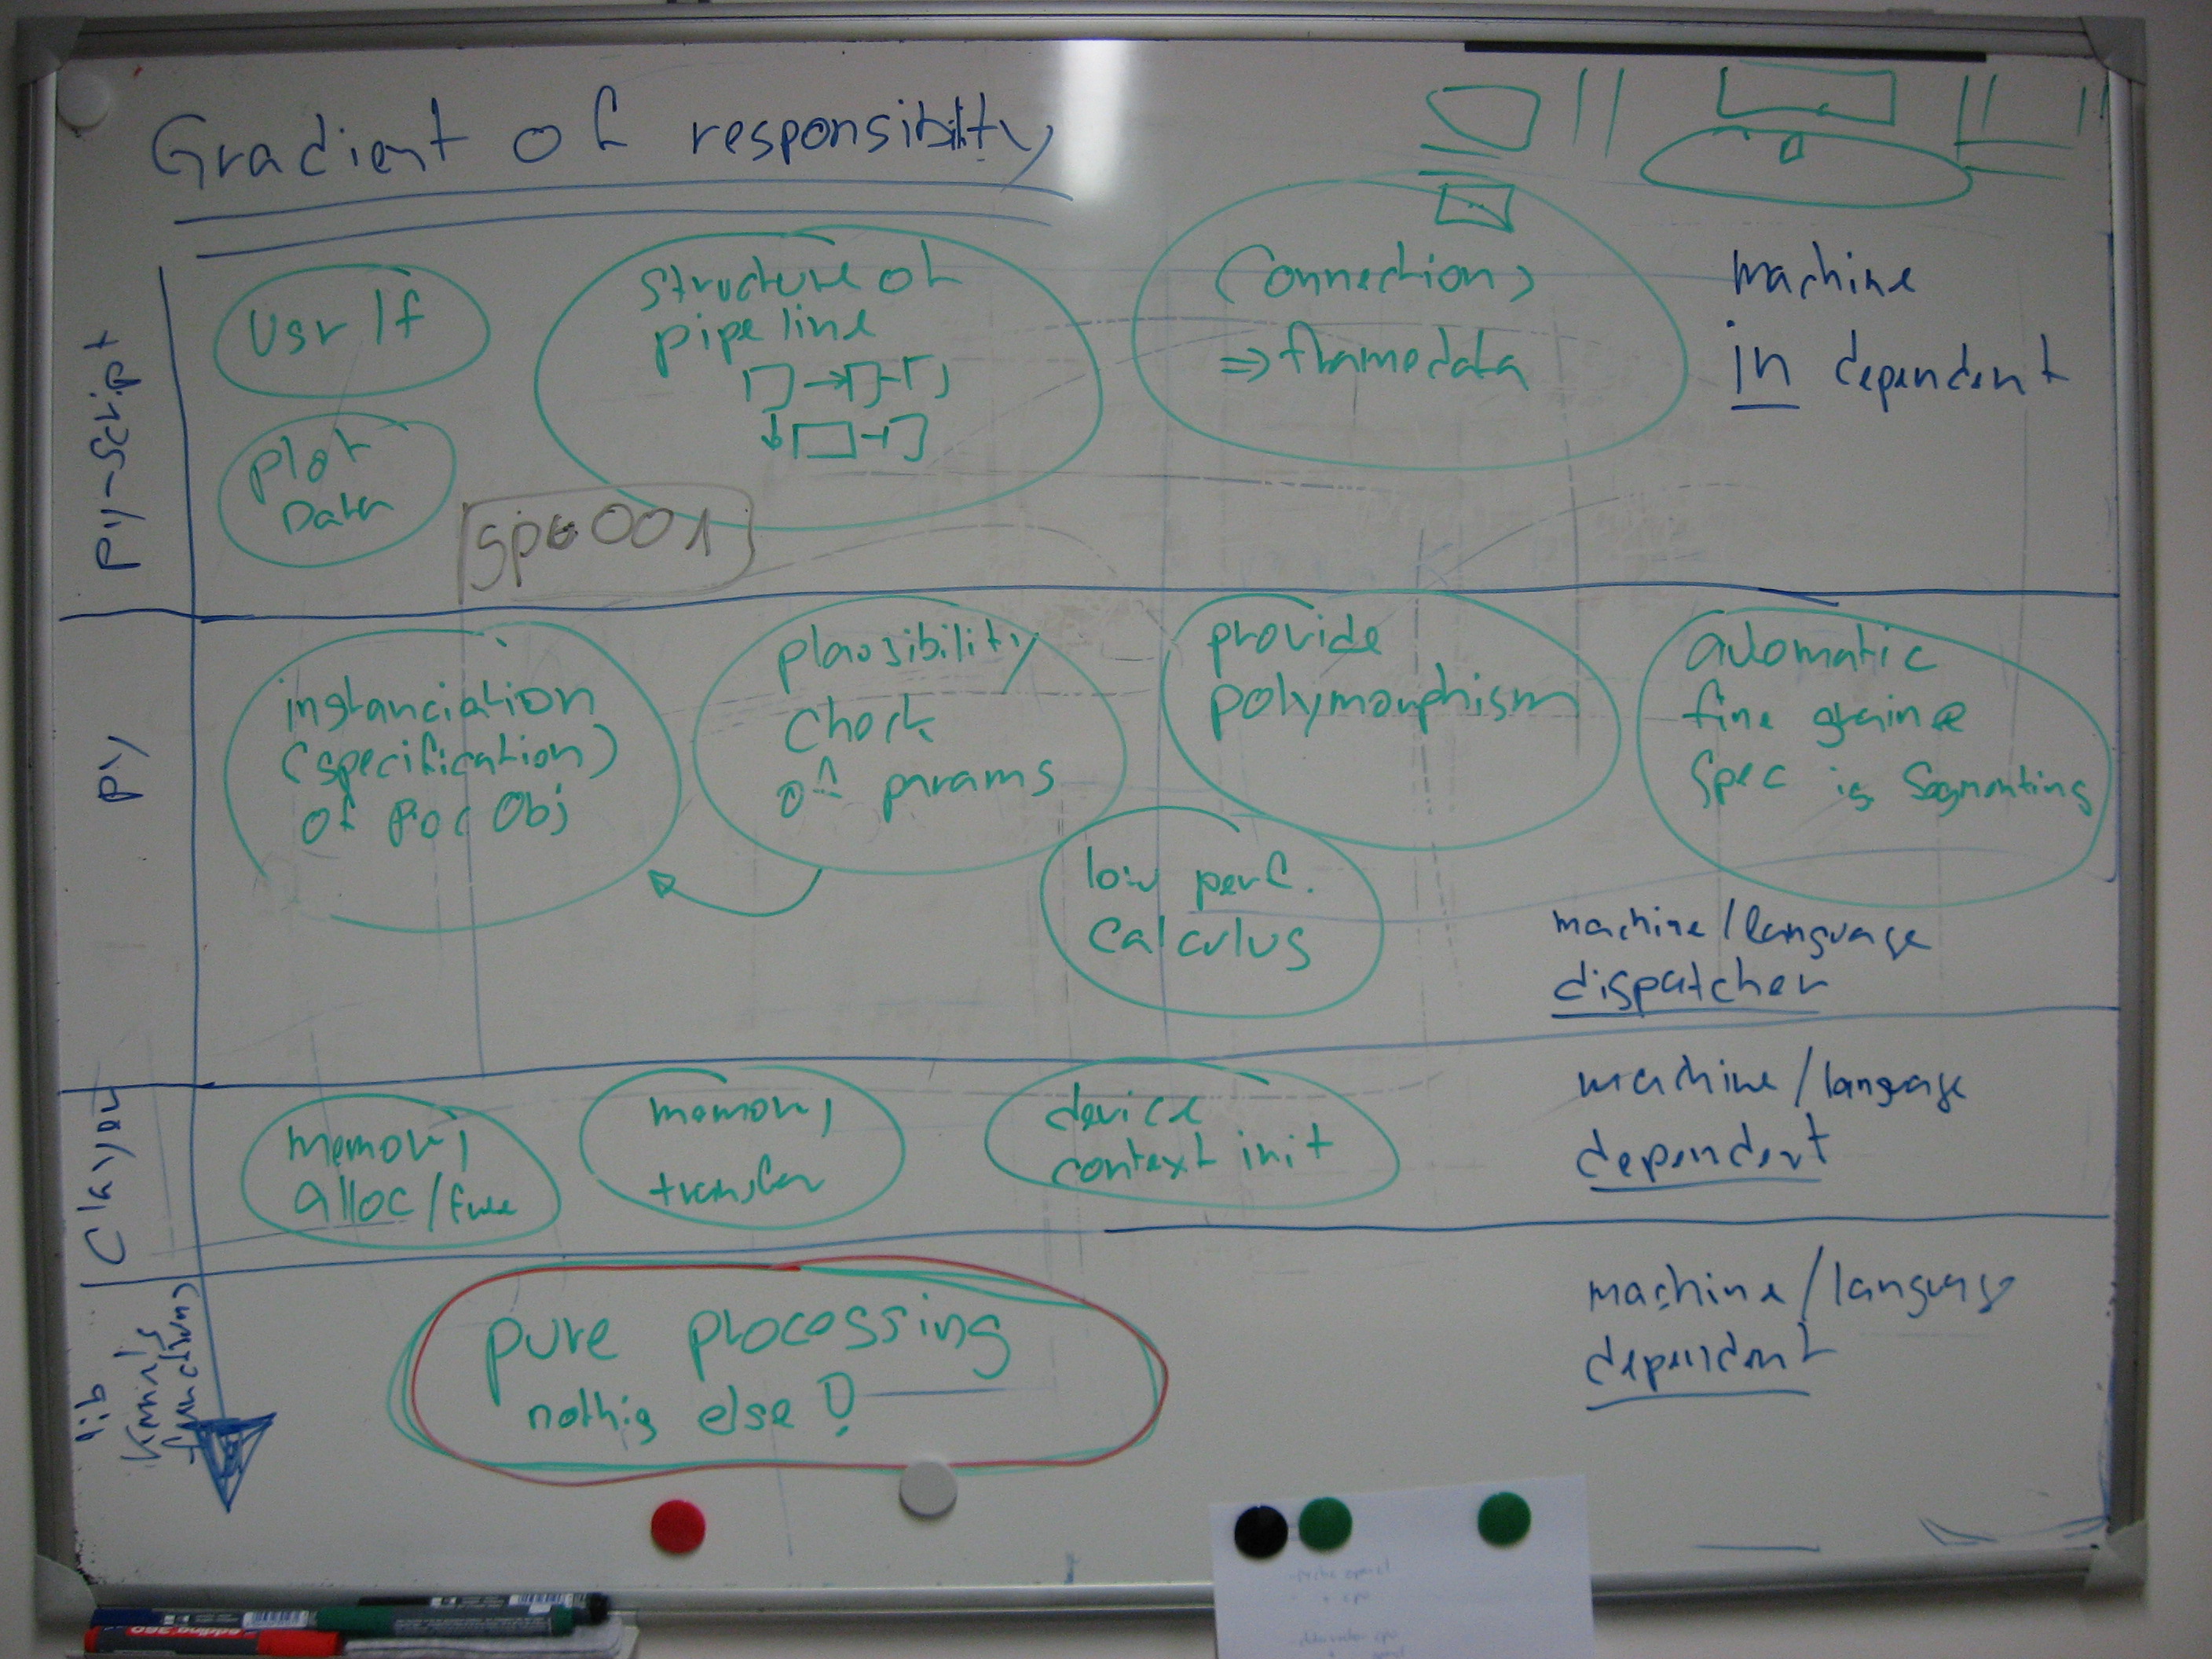 Gradient of responsibility
py-script
usr If
structure of
pipeline
Connections
⇒ framedata
machine
in dependent
plot
Data
001
py
instanciation
(specification)
of Proc Obj
plausibility
check
of params
provide
polymorphism
automatic
fine graine
spec is Segmenting
low perf.
calculus
machine/language
dispatcher
Clayer
memory
alloc/free
memory
transfer
device
context init
machine/language
dependent
lib
functions
pure processing
nothig else!
machine/language
dependent
edding 360